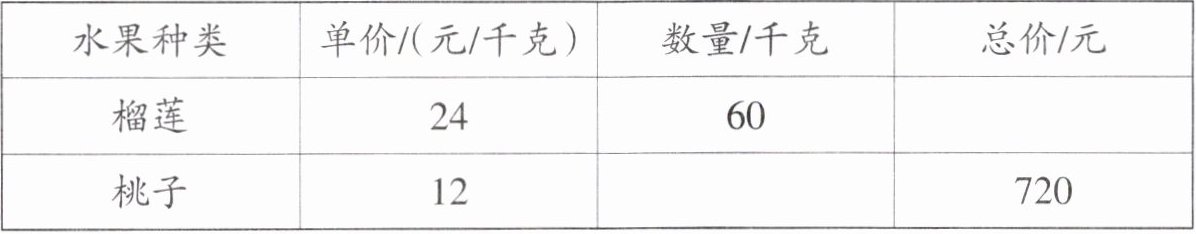 水果种类 单价/(元/千克) 数量/千克 总价/元
榴莲 24 60
桃子 12 720